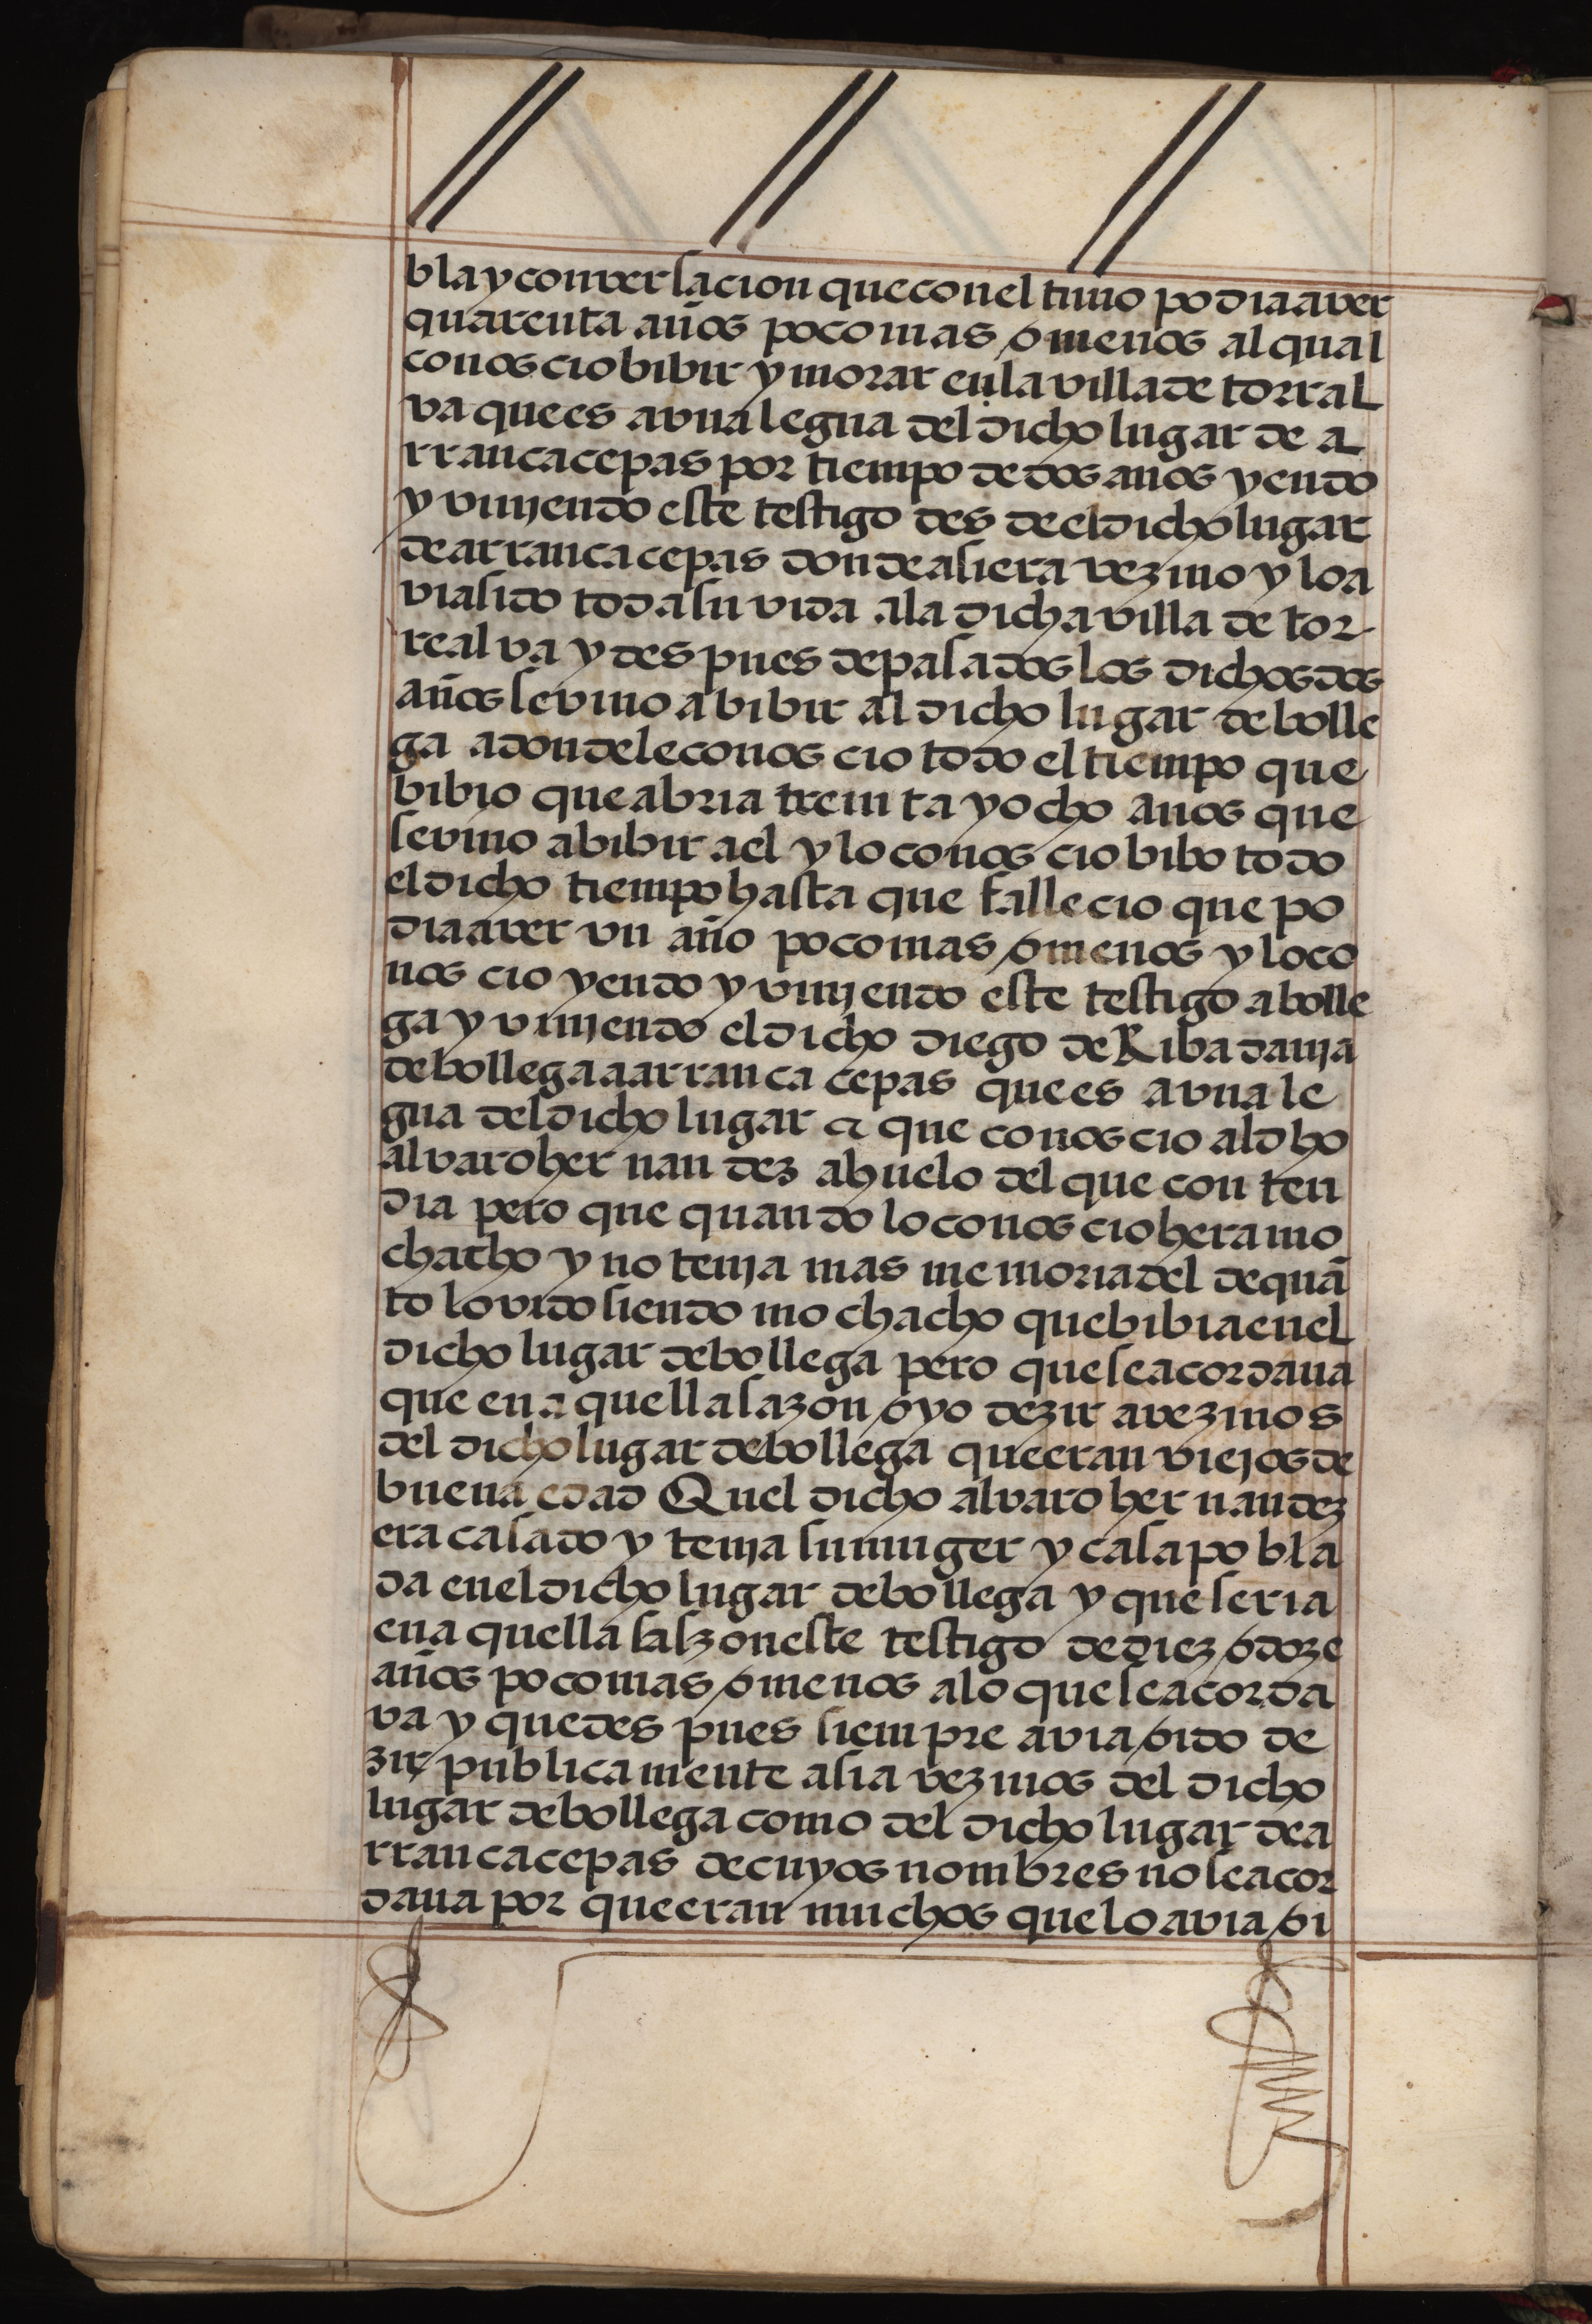 bla y conversacion que con el tuvo podia aver
quarenta años poco mas o menos al qual
conoscio bibir y morar en la villa de torral
va que es a vna legua del dicho lugar de a
rrancacepas por tiempo de dos anos yendo
y vinjendo este testigo desde el dicho lugar
de arrancacepas donde asi era vezino y lo a
via sido toda su vida a la dicha villa de tor
realva y despues de pasados los dichos dos
años se vino a bibir al dicho lugar de bolle
ga adonde le conoscio todo el tiempo que
bibio que abria treinta y ocho anos que
se vino a bibir a el y lo conoscio bibo todo
el dicho tiempo hasta que fallecio que po
dia aver vn año poco mas o menos y lo co
noscio yendo y vinjendo este testigo a bolle
ga y vinjendo el dicho diego de Ribadanja
de bollega a arrancacepas que es a vna le
gua del dicho lugar & que conoscio al dho
alvaro hernandez ahuelo del que conten
dia pero que quando lo conoscio hera mo
chacho y no tenja mas memoria del de quā
to lo vido siendo mochacho que bibia en el
dicho lugar de bollega pero que se acordaua
que en aquella sazon oyo dezir a vezinos
del dicho lugar de bollega que eran viejos de
buena edad Quel dicho alvaro hernandez
era casado y tenja su muger y casa pobla
da en el dicho lugar de bollega y que seria
en aquella salzon este testigo de diez o doze
años poco mas o menos a lo que se acorda
va y que despues siempre avia oido de
zir publicamente asi a vezinos del dicho
lugar de bollega como del dicho lugar de a
rrancacepas de cuyos nombres no se acor
daua por que eran muchos que lo avia oi